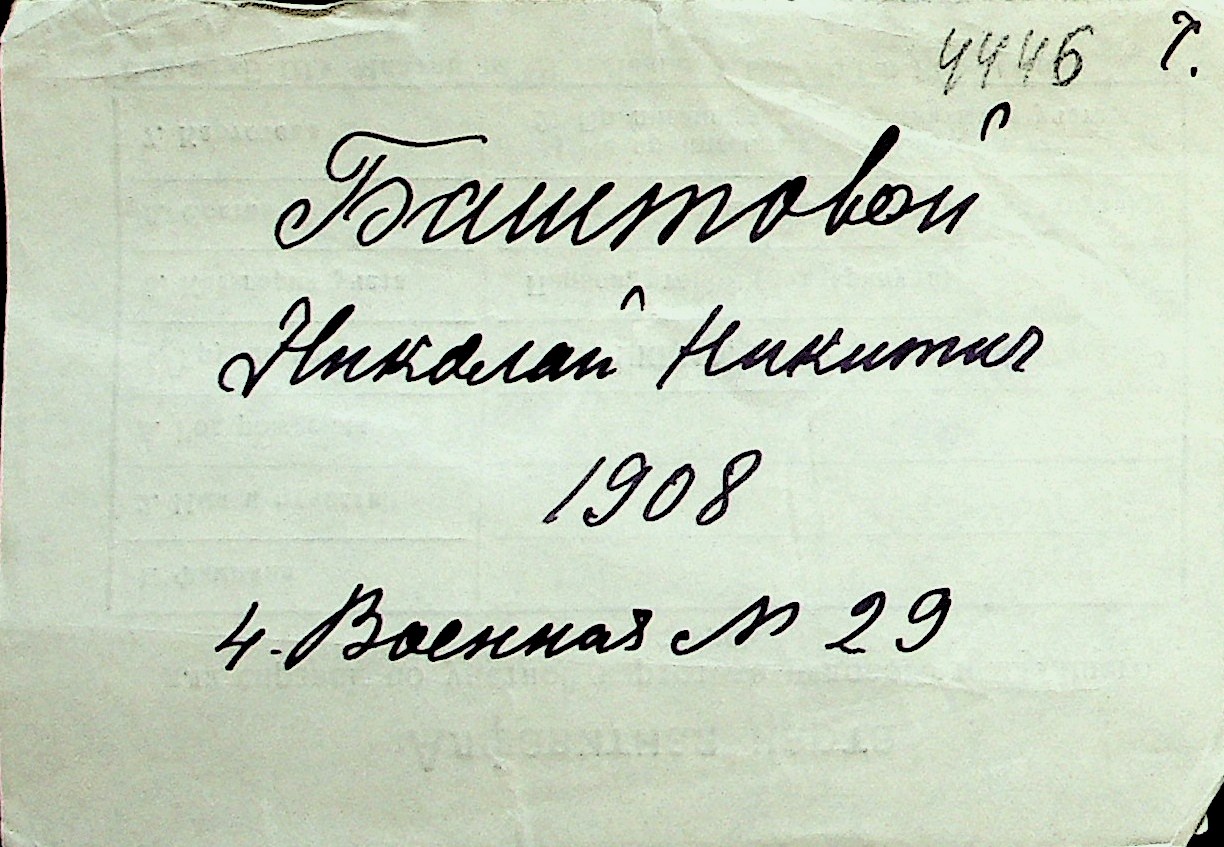 4446 Т.
Баштовой
Николай Никитич
1908
4. Военная № 29